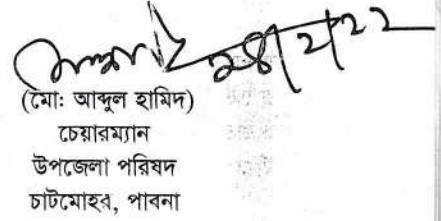 ২৪/২/২২
(মো: আব্দুল হামিদ)
চেয়ারম্যান
উপজেলা পরিষদ
চাটমোহর, পাবনা